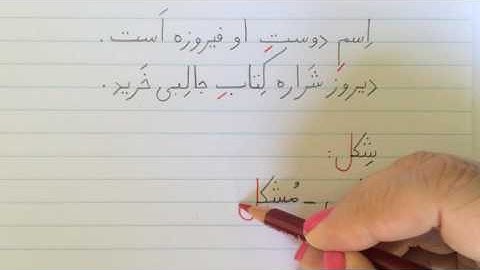 اِسم دوستِ او فیروزه اَست.
دیروَز شَراره کِتابِ جالِبی خَرید.
شِکل:
- مُشکل